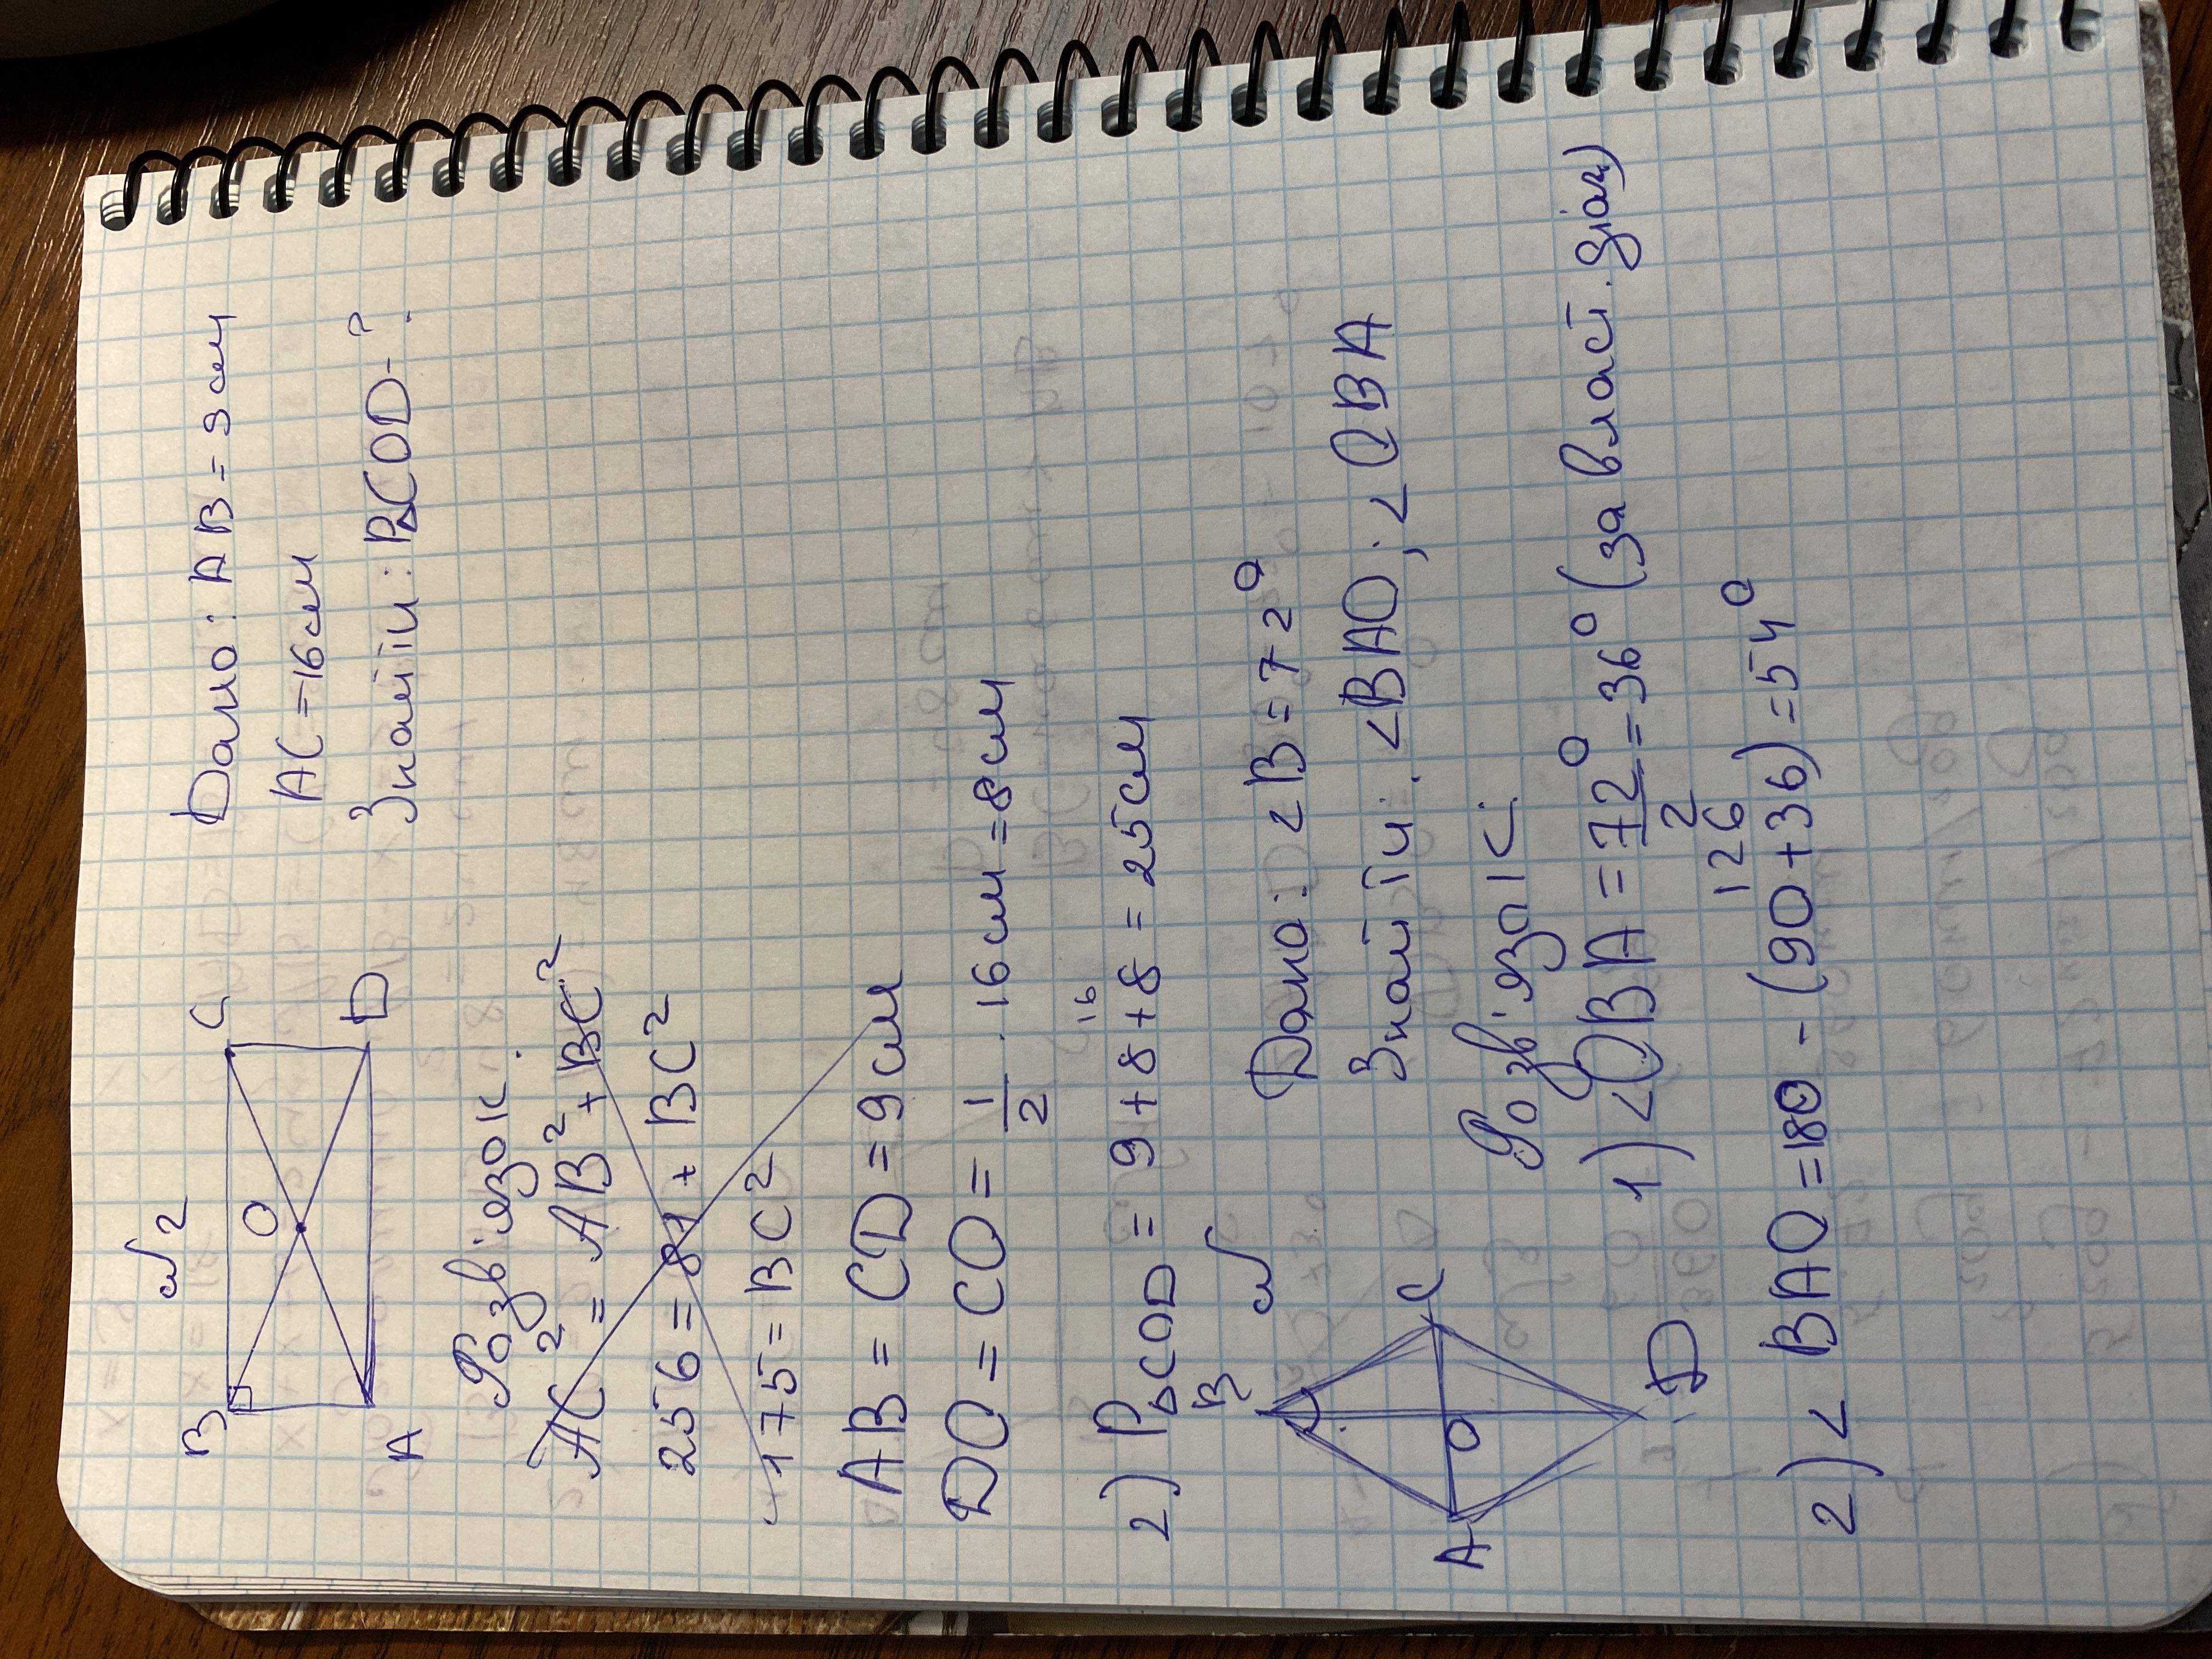 №2
B C
O
A D
Дано: AB = 9 см
AC = 16 см
Знайти: P△COD - ?
Розв'язок:
AC² = AB² + BC²
256 = 81 + BC²
175 = BC²
AB = CD = 9 см
DO = CO = 1/2 · 16 см = 8 см
16
2) P△COD = 9 + 8 + 8 = 25 см
№
B
A O C
D
Дано: ∠B = 72°
Знайти: ∠BAO; ∠OBA
Розв'язок:
1) ∠OBA = 72°/2 = 36° (за власт. діаг)
126
2) ∠BAO = 180 - (90 + 36) = 54°